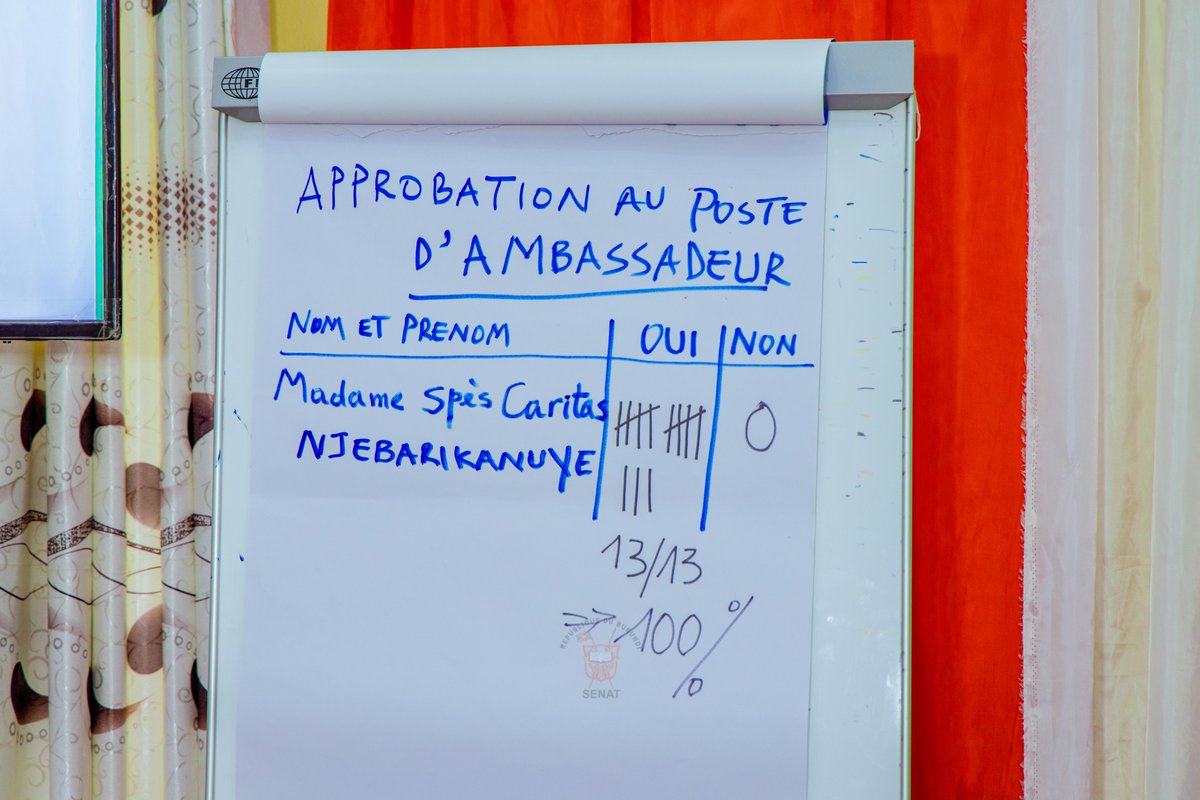 APPROBATION AU POSTE
D'AMBASSADEUR
NOM ET PRENOM OUI NON
Madame Spès Caritas
NJEBARIKANUYE
0
13/13
=> 100 %
REPUBLIQUE DU BURUNDI
SENAT